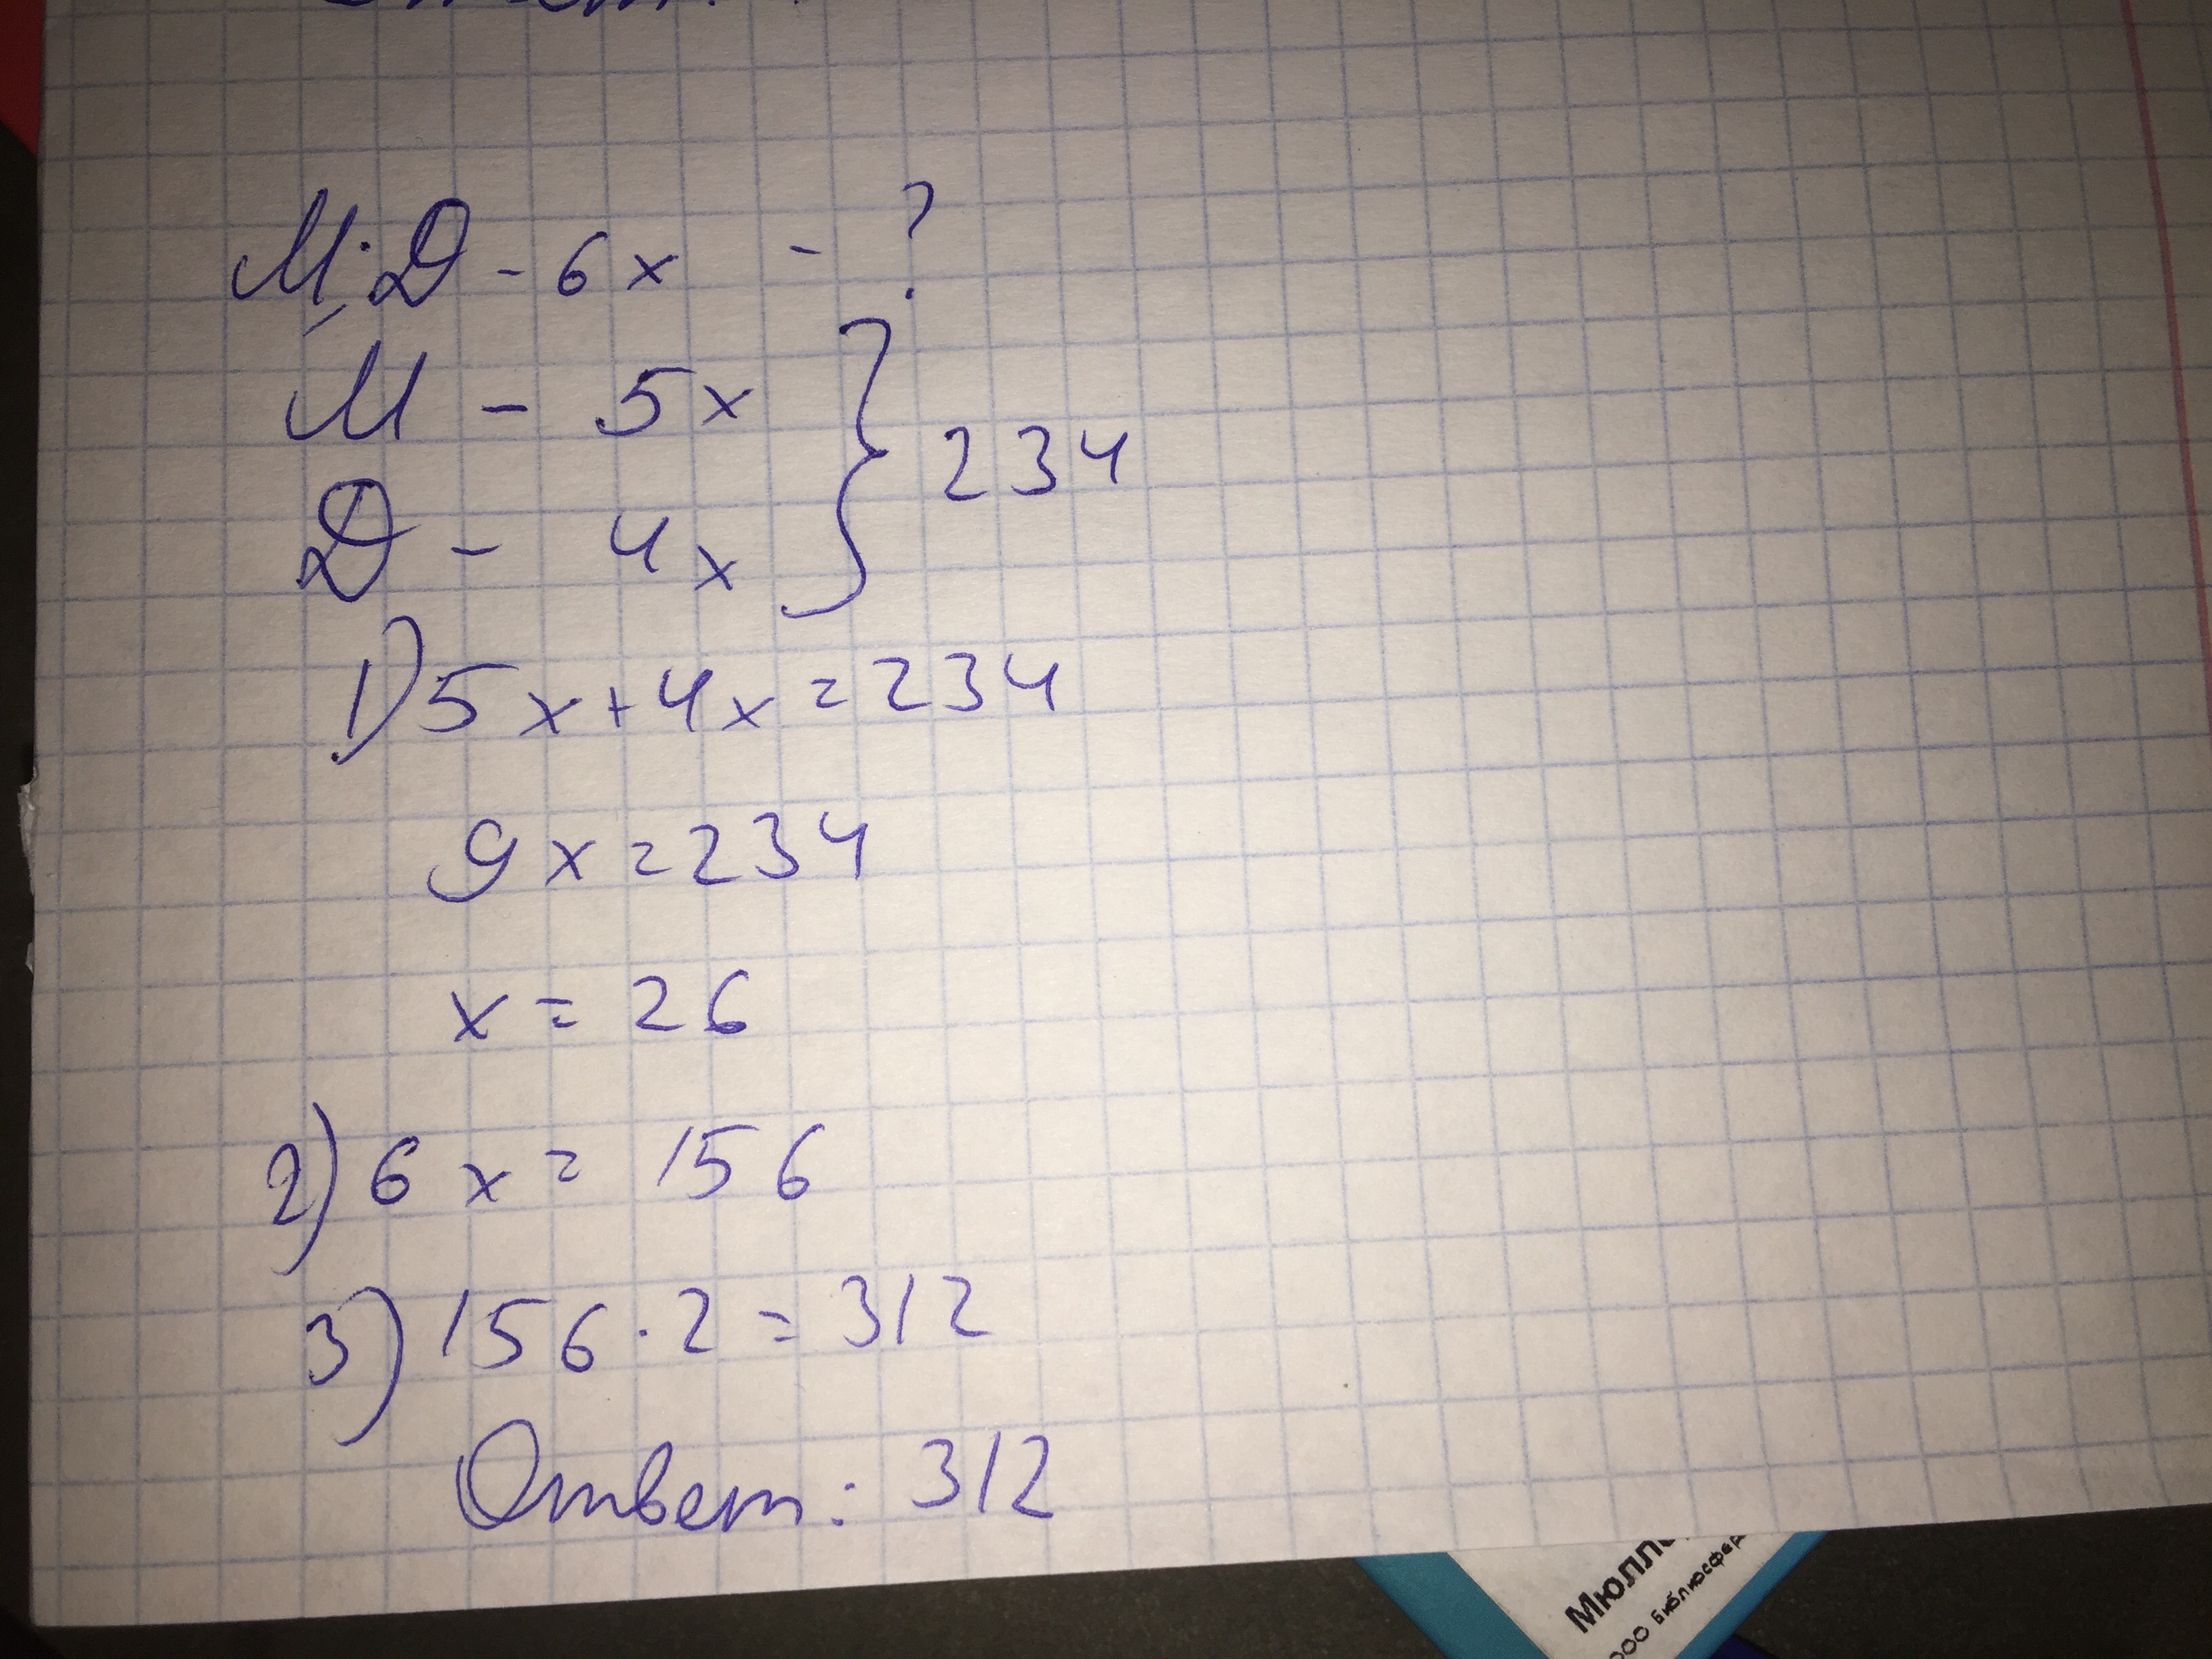 М.Д - 6x - ?
М - 5x
Д - 4x } 234
1) 5x+4x=234
9x=234
x=26
2) 6x=156
3) 156·2=312
Ответ: 312
ООО Библиосфер